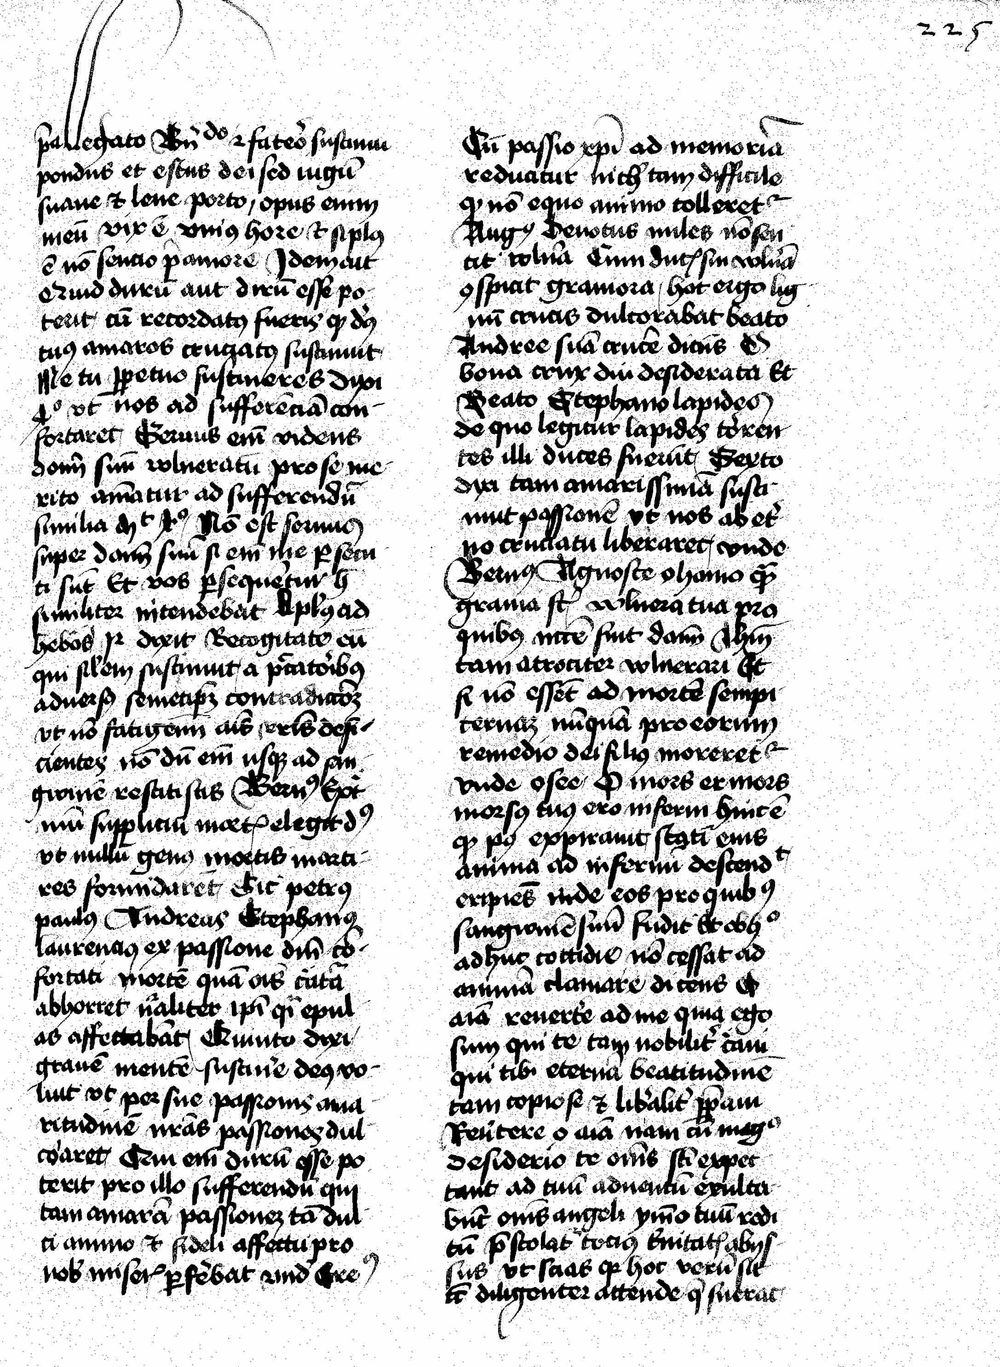 225
pallegato Bern̄do ⁊ fateor sustinui
pondus et estus dei sed iugū
suaue ⁊ leue porto, opus enim
meū vix ē vnius hore ⁊ si plꝰ
ē nō sentio p amore Idem ait
Quid durū aut dirū esse po-
terit cū recordatꝰ fueris ꝙ dn̄s
tuꝰ amaros cruciatꝰ sustinuit
Ne tu ꝑpetuo sustineres dixi
4º vt nos ad sufferenciā con-
fortaret Seruus em̄ videns
dom̄ suū vulneratū pro se me-
rito aīatur ad sufferendū
similia Nō est seruus
super dom̄ suū si em̄ me ꝑsecu
ti sūt Et vos ꝑsequētur
similiter intendebat Aplꝰ ad
hebos dixit Recogitate eū
qui talem sustinuit a pctoribꝫ
aduersꝰ semetipꝫ contradictoēꝫ
vt nō fatigemī aīs vrīs defi-
cientes nō dū em̄ usqꝫ ad san-
gwinē restitistis Bernꝰ
mū suppliciū elegit
vt nullū genꝰ mortis marti-
res formidaret Sic petrꝰ
paulꝰ Andreas Stephanꝰ
laurenciꝰ ex passione dnī cō-
fortati mortē quā oīs
abhorret nāliter ipī qī epul
as affectabāt Quinto dixi
grauē mortē sustine deꝰ vo-
luit vt per sue passionis ama
ritudinē nrās passiones dul
coraret Quī em̄ durū esse po
terit pro illo sufferendū qui
tam amarā passionē tā dul
ci animo ⁊ fideli affectu pro
nob miseris ꝑferebat vnd Greꝰ
Cū passio xpī ad memoriā
reducitur nich tam difficile
ꝙ nō equo animo tolleretᷣ
Augꝰ Deuotus miles nō sen
tit vulnā Cum ducis sui vulnā
ꝯspicit grauiora, hoc ergo lig
nū crucis dulcorabat beato
Andree suā crucē dicēs O
bona crux diu desiderata Et
Beato Stephano lapides
de quo legitur lapides torren
tes illi dulces fuerūt Sexto
dixi tam amarissimā susti-
nuit passionē vt nos ab et
no cruciatu liberaret, vnde
Bernꝰ Agnosce o homo
grauia sūt vulnera tua pro
quibꝰ sint dnm̄ Ihm̄
tam atrociter vulnerari Et
si nō essēt ad mortē sempi
ternaꝫ nūquā pro eorum
remedio dei filiꝰ moreretᷣ
vnde osee O mors ero mors
morsꝰ tuꝰ ero inferni hinc ē
ꝙ pꝰ expirauit statī eiꝰ
anima ad infernū descendit
eripiēs inde eos pro quibꝰ
sangwinē suū fudit Et
adhuc cottidie nō cessat ad
animā clamare dicens O
aīa reuerte ad me quia ego
sum qui te tam nobilit̄ cāui
qui tibi eternā beatitudinē
tam copiose ⁊ liberalit̄ ꝑpaui
Reūtere o aīa nam cū magº
desiderio te om̄s stī expec
tant ad tuū aduentū exulta
būt om̄s angeli ymo tuū redi
tū totiꝰ
sus vt scias ꝙ hoc verū sit
diligenter attende fuerat